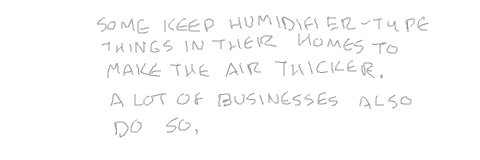 SOME KEEP HUMIDIFIER-TYPE
THINGS IN THEIR HOMES TO
MAKE THE AIR THICKER.
A LOT OF BUSINESSES ALSO
DO SO.